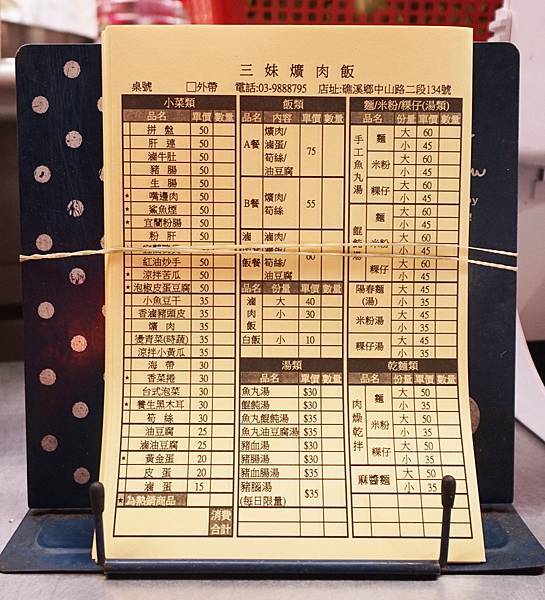 三妹爌肉飯
桌號 □外帶 電話:03-9888795 店址:礁溪鄉中山路二段134號
小菜類
品名 單價 數量
拼盤 50
肝連 50
滷牛肚 50
豬腸 50
生腸 50
★ 嘴邊肉 50
★ 鯊魚煙 50
★ 宜蘭粉腸 50
粉肝 50
紅油炒手 50
★ 涼拌苦瓜 50
★ 泡椒皮蛋豆腐 50
小魚豆干 35
香滷豬頭皮 35
爌肉 35
燙青菜(時蔬) 35
涼拌小黃瓜 35
海帶 30
★ 香菜捲 30
台式泡菜 30
★ 養生黑木耳 30
筍絲 30
油豆腐 25
滷油豆腐 25
★ 黃金蛋 20
皮蛋 20
滷蛋 15
★為熱銷商品
消費合計
飯類
品名 內容 單價 數量
A餐 爌肉/滷蛋/筍絲/油豆腐 75
B餐 爌肉/筍絲 55
滷 滷肉/
飯餐 筍絲/油豆腐 60
品名 份量 單價 數量
滷肉飯 大 40
小 30
白飯 小 10
湯類
品名 單價 數量
魚丸湯 $30
餛飩湯 $30
魚丸餛飩湯 $35
魚丸油豆腐湯 $35
豬血湯 $30
豬腸湯 $30
豬血腸湯 $35
豬腦湯(每日限量) $35
麵/米粉/粿仔(湯類)
品名 份量 單價 數量
手工魚丸湯 麵 大 60
小 45
米粉 大 60
小 45
粿仔 大 60
小 45
餛飩湯 麵 大 60
小 45
米粉 大 60
小 45
粿仔 大 60
小 45
陽春麵(湯) 大 45
小 35
米粉湯 大 45
小 35
粿仔湯 大 45
小 35
乾麵類
品名 份量 單價 數量
肉燥乾拌 麵 大 50
小 35
米粉 大 50
小 35
粿仔 大 50
小 35
麻醬麵 大 50
小 35